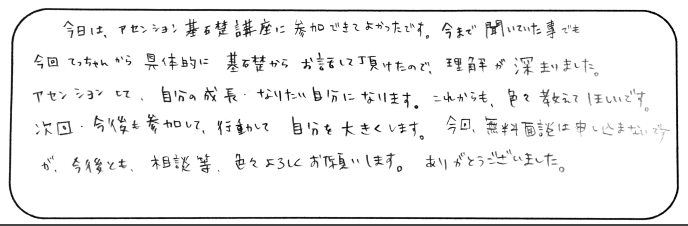 今日は、アセンション基礎講座に参加できてよかったです。今まで聞いていた事でも
今回てっちゃんから具体的に基礎からお話して頂けたので、理解が深まりました。
アセンションして、自分の成長・なりたい自分になります。これからも、色々教えてほしいです。
次回・今後も参加して、行動して自分を大きくします。今回、無料面談は申し込まないです
が、今後とも、相談等、色々よろしくお願いします。ありがとうございました。